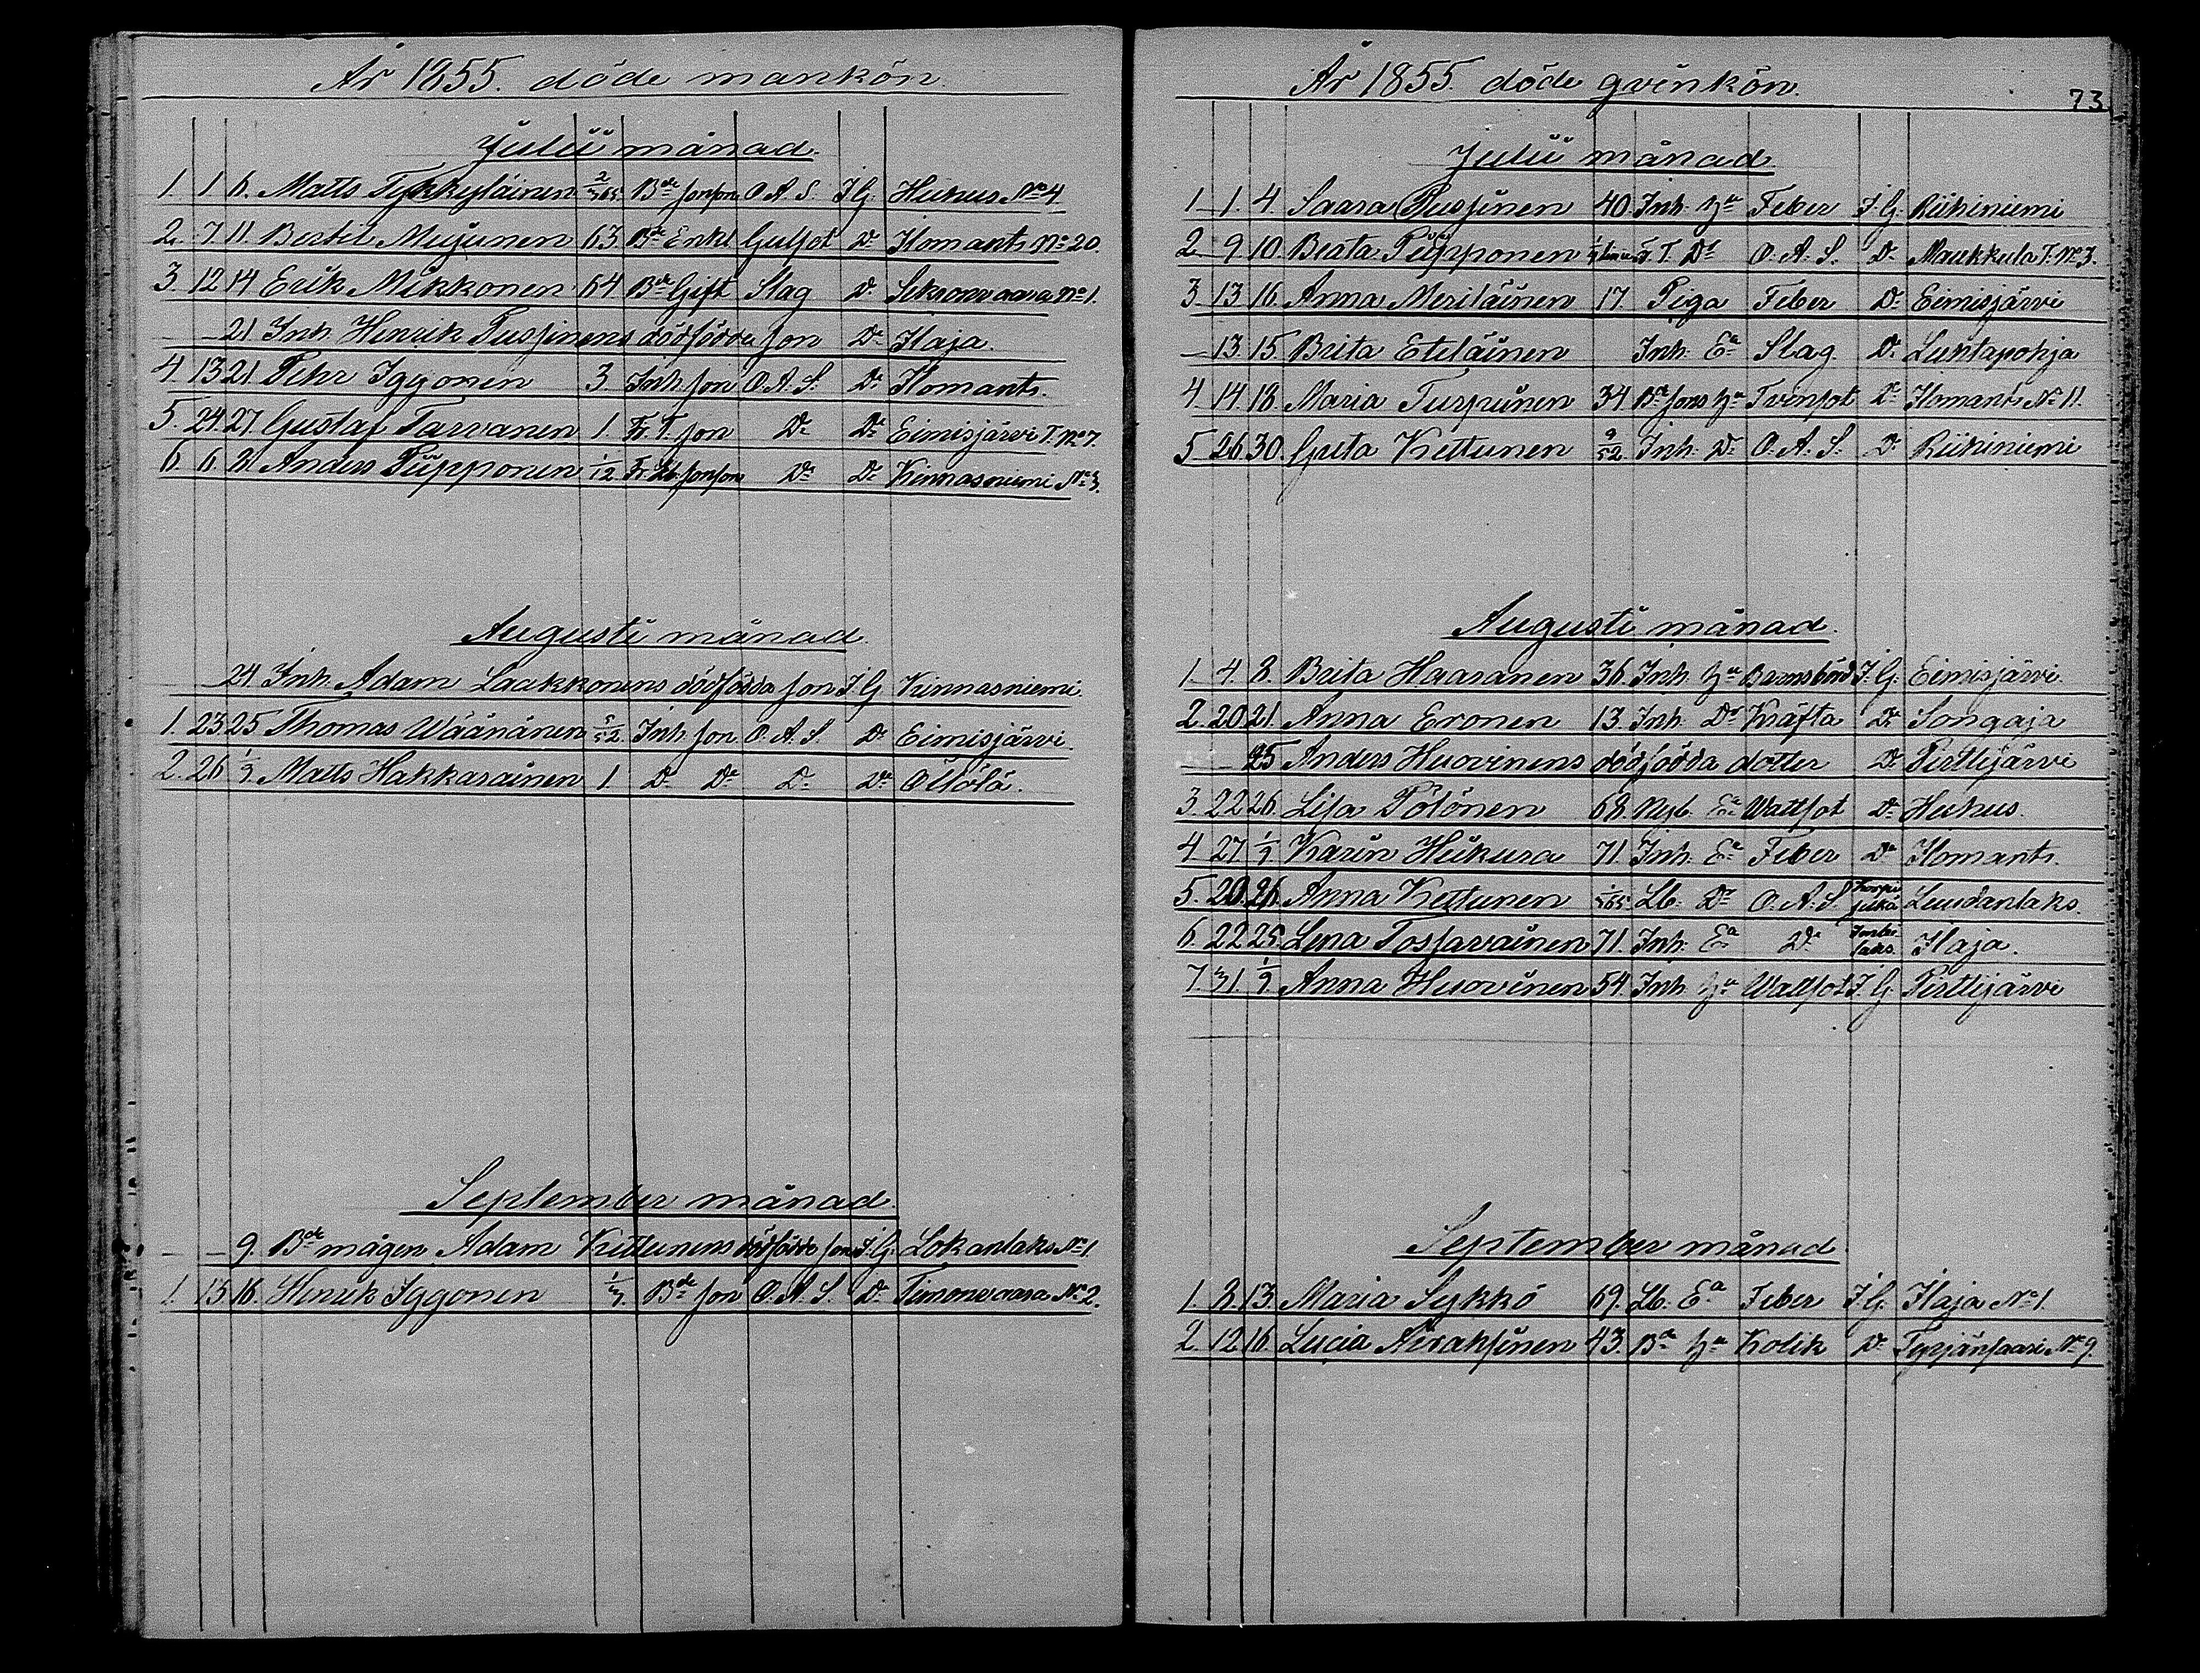 År 1855. döde mankön.
Julii månad.
1. 1 6. Matts Tykkyläinen 2/365 Bde sonson O. A. S. I. G. Huhus No 4.
2. 7. 11. Bertil Mujunen 63 Bde Enkl Gulsot Do Ilomants No 20.
3. 12 14 Erik Mikkonen 64 Bde Gift Slag Do Sikronvaara No 1.
21 Inh. Henrik Pussinens dödfödde son Do Ilaja.
4. 13 21. Pehr Iggonen 3. Inh. son O. A. S. Do Ilomants.
5. 24. 27 Gustaf Tarvanen 1. Fr. T. son Do Do Eimisjärvi T. No 7.
6. 6. 8 Anders Piipponen 1/12. Fr. Lb. sonson Do Do Kinnasniemi No 3.
Augusti månad.
24. Inh. Adam Laakkonens dödfödda son I. G. Kinnasniemi
1. 23. 25 Thomas Wäänänen 5/52 Inh. son O. A. S. Do Eimisjärvi.
2. 26 1/9 Matts Hakkarainen 1. Do Do Do Do Ollölä.
September månad.
9. Bde mågen Adam Kettunens dödfödde son I. G. Lokanlaks No 1.
1. 15 16. Henrik Iggonen Bde son O. A. S. Do Timonvaara No 2.
År 1855. döde qvinkön.
73
Julii månad.
1. 1. 4. Saara Pussinen 40. Inh. hu Feber I. G. Riihiniemi
2. 9 10. Beata Piipponen T. Dr O. A. S. Do Maukkula T. No 3.
3. 13 16. Anna Meriläinen 17. Piga Feber Do Eimisjärvi
13. 15. Brita Eteläinen Inh. Ea Slag. Do Luhtapohja
4 14. 18. Maria Turpunen 34 Bde sons hu Tvinsot Do Ilomants No 11.
5 26 30. Greta Kettunen 9/52. Inh. Dr O. A. S. Do Riihiniemi
Augusti månad.
1. 4. 8. Brita Haaranen 36. Inh. hu Barnsbörd I. G. Eimisjärvi.
2. 20. 21. Anna Eronen 13. Inh. Dr Kräfta Do Songaja
25 Anders Huovinens dödfödda dotter Do Perttijärvi
3. 22 26. Lisa Pölönen 68. Nyb. Ea Wattsot Do Huhus.
4. 27 1/9 Karin Hiikura 71. Inh. Ea Feber Do Ilomants.
5. 20. 26. Anna Kettunen 1/365 Lb. Dr O. A. S. Luudanlaks.
6. 22 25. Lena Tossavainen 71. Inh. Ea Do Ilaja.
7. 31. 1/9 Anna Huovinen 54. Inh. hu Wattsot I. G. Perttijärvi
September månad
1. 8. 13. Maria Sykkö 69. Lb. Ea Feber I. G. Ilaja No 1.
2. 12 16. Lucia Airaksinen 43. Bde hu Kolik Do Tyrjänsaari No 9.